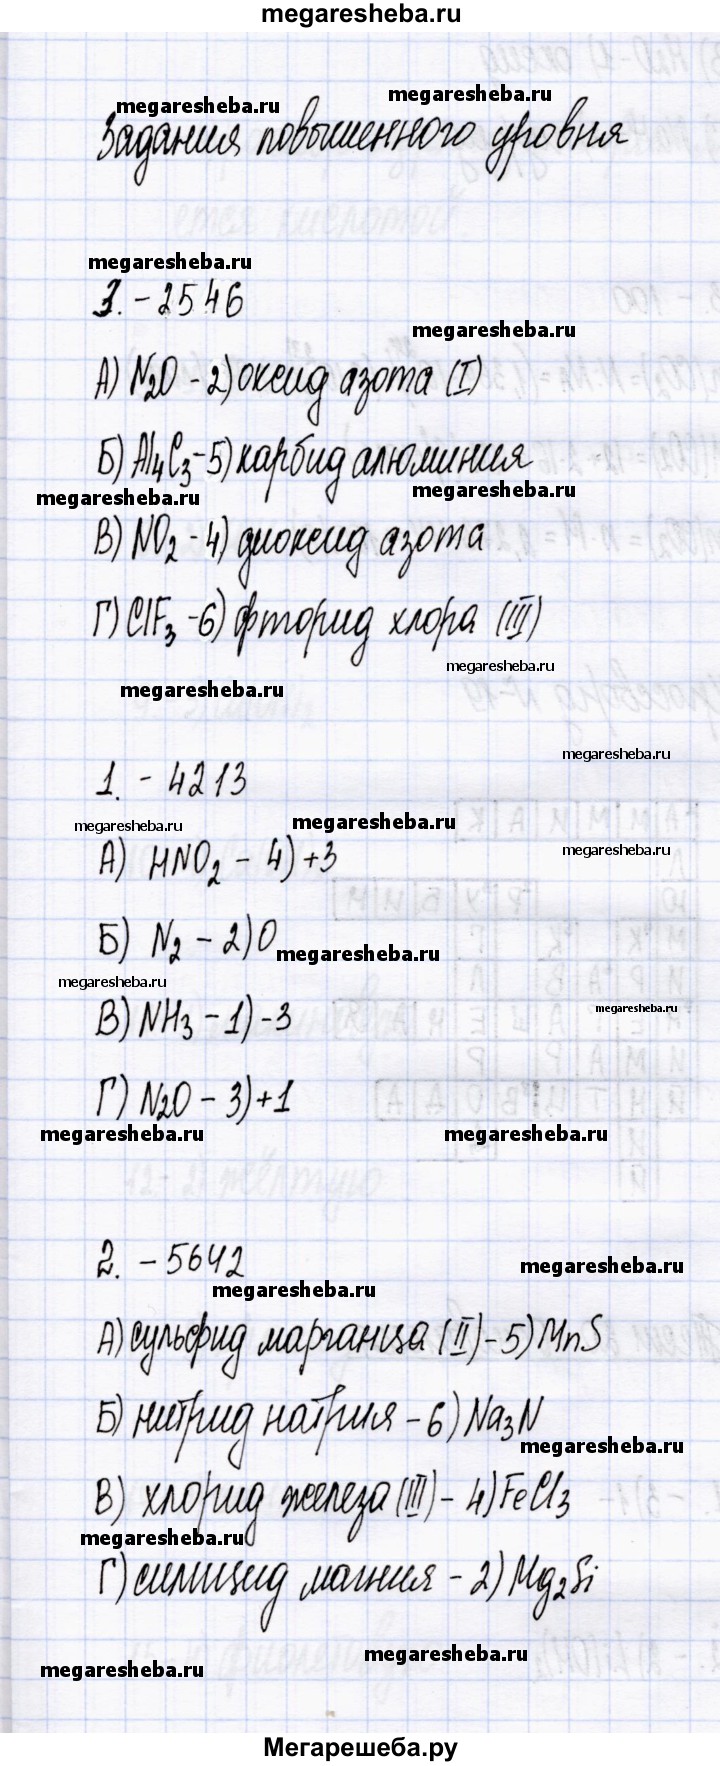 megaresheba.ru
megaresheba.ru megaresheba.ru
Задания повышенного уровня
megaresheba.ru
3. - 2546
megaresheba.ru
А) N₂O - 2) оксид азота (I)
Б) Al₄C₃ - 5) карбид алюминия
megaresheba.ru megaresheba.ru
В) NO₂ - 4) диоксид азота
Г) ClF₃ - 6) фторид хлора (III)
megaresheba.ru
megaresheba.ru
megaresheba.ru
1. - 4213
megaresheba.ru megaresheba.ru
А) HNO₂ - 4) +3
megaresheba.ru
Б) N₂ - 2) 0
megaresheba.ru
megaresheba.ru
В) NH₃ - 1) -3
megaresheba.ru
Г) N₂O - 3) +1
megaresheba.ru megaresheba.ru
2. - 5642
megaresheba.ru
megaresheba.ru
А) сульфид марганца (II) - 5) MnS
Б) нитрид натрия - 6) Na₃N
megaresheba.ru
В) хлорид железа (III) - 4) FeCl₃
megaresheba.ru
Г) силицид магния - 2) Mg₂Si
megaresheba.ru
megaresheba.ru
Мегарешеба.ру